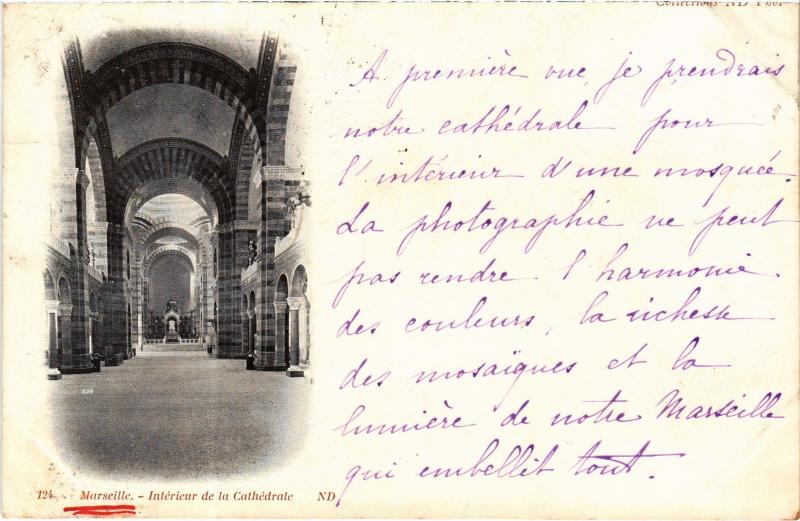 Collections ND Phot
A première vue, je prendrais
notre cathédrale pour
l'intérieur d'une mosquée.
La photographie ne peut
pas rendre l'harmonie
des couleurs, la richesse
des mosaïques et la
lumière de notre Marseille
qui embellit tout.
124. Marseille. - Intérieur de la Cathédrale ND